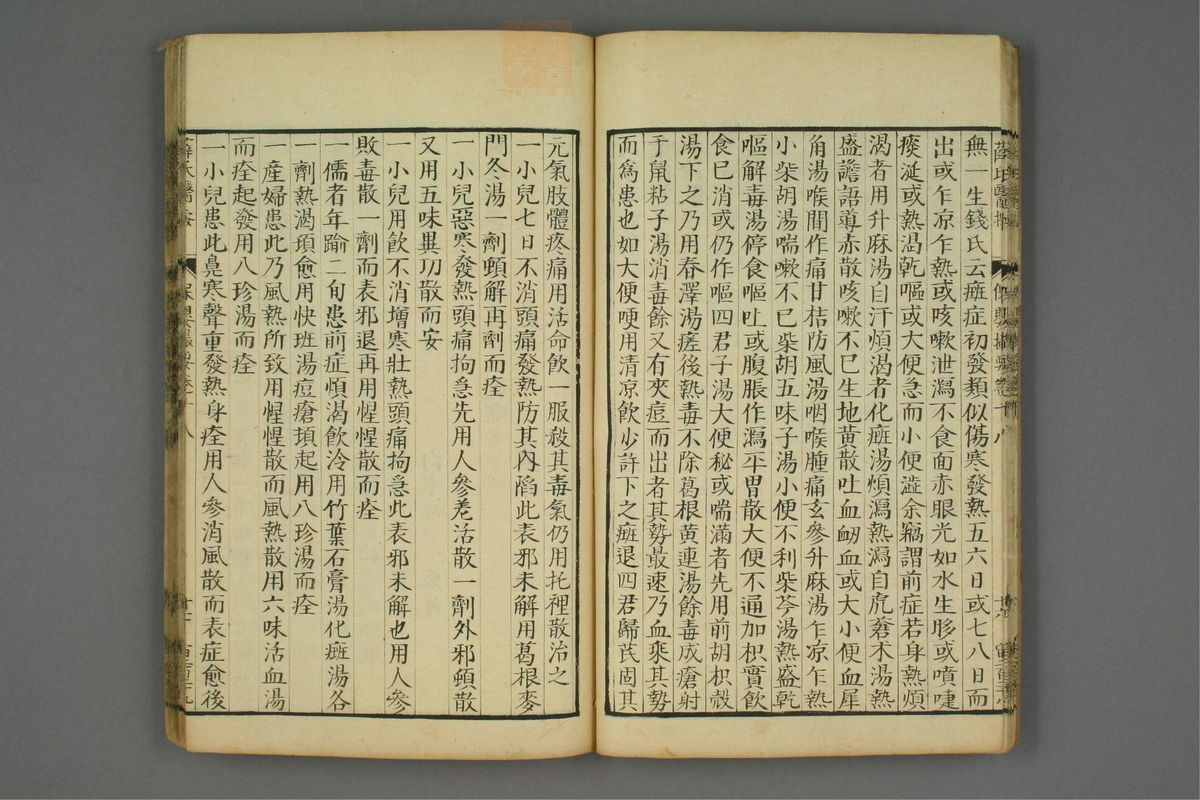 無一生錢氏云癍症初發類似傷寒發熱五六日或七八日而
出或乍凉乍熱或咳嗽泄瀉不食面赤眼光如水生眵或噴嚏
痰涎或熱渴乾嘔或大便急而小便澁余竊謂前症若身熱煩
渴者用升麻湯自汗煩渴者化癍湯煩瀉熱瀉自虎蒼朮湯熱
盛譫語導赤散咳嗽不已生地黃散吐血衂血或大小便血犀
角湯喉間作痛甘桔防風湯咽喉腫痛玄參升麻湯乍凉乍熱
小柴胡湯喘嗽不已柴胡五味子湯小便不利柴苓湯熱盛乾
嘔解毒湯停食嘔吐或腹脹作瀉平胃散大便不通加枳實飲
食已消或仍作嘔四君子湯大便秘或喘滿者先用前胡枳殻
湯下之乃用春澤湯瘥後熱毒不除葛根黃連湯餘毒成瘡射
于鼠粘子湯消毒餘又有夾痘而出者其勢最速乃血乘其勢
而爲患也如大便哽用清凉飲少許下之癍退四君歸芪固其
元氣肢體疼痛用活命飲一服殺其毒氣仍用托裡散治之
一小兒七日不消頭痛發熱防其內陷此表邪未解用葛根麥
門冬湯一劑頓解再劑而痊
一小兒惡寒發熱頭痛拘急先用人參羌活散一劑外邪頓散
又用五味異功散而安
一小兒用飲不消増寒壯熱頭痛拘急此表邪未解也用人參
敗毒散一劑而表邪退再用惺惺散而痊
一儒者年踰二旬患前症煩渴飲冷用竹葉石膏湯化癍湯各
一劑熱渴頓愈用快班湯痘瘡頓起用八珍湯而痊
一產婦患此乃風熱所致用惺惺散而風熱散用六味活血湯
而痊起發用八珍湯而痊
一小兒患此鼻寒聲重發熱身痊用人參消風散而表症愈後